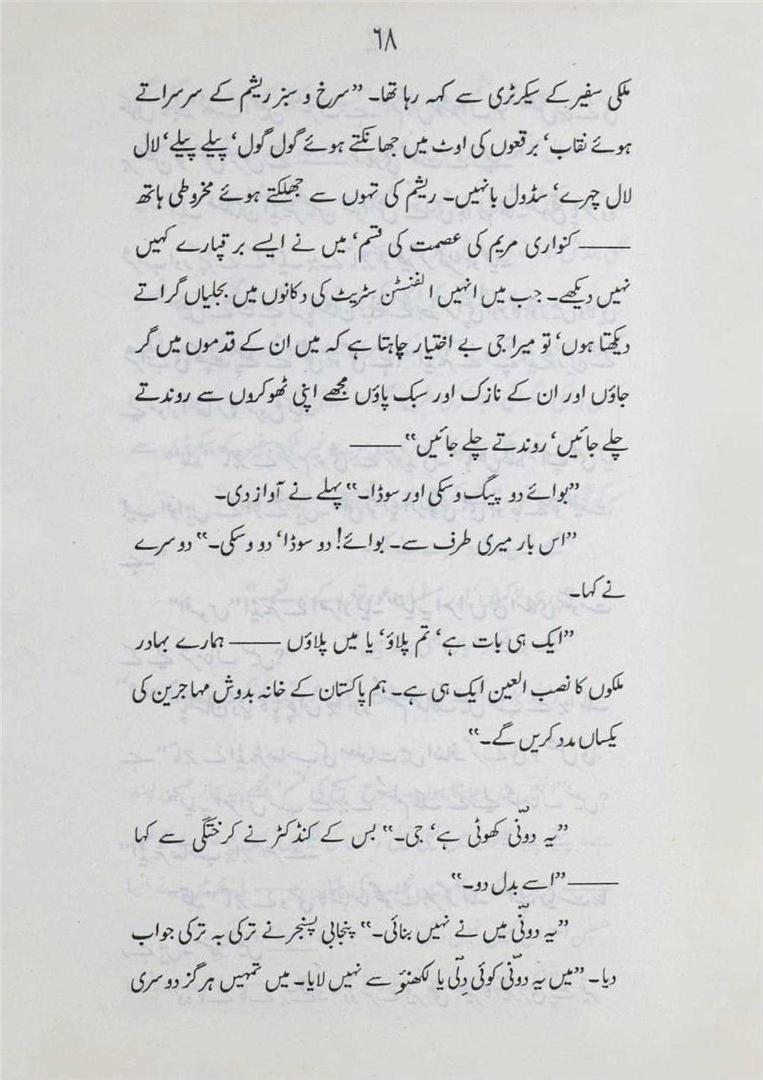 ۶۸
ملکی سفیر کے سیکرٹری سے کہہ رہا تھا۔ ”سرخ و سبز ریشم کے سرسراتے
ہوئے نقاب‘ برقعوں کی اوٹ میں جھانکتے ہوئے گول گول‘ پیلے پیلے‘ لال
لال چہرے‘ سڈول بانہیں۔ ریشم کی تہوں سے جھلکتے ہوئے مخروطی ہاتھ
—— کنواری مریم کی عصمت کی قسم‘ میں نے ایسے برقپارے کہیں
نہیں دیکھے۔ جب میں انہیں الفنسٹن سٹریٹ کی دکانوں میں بجلیاں گراتے
دیکھتا ہوں‘ تو میرا جی بے اختیار چاہتا ہے کہ میں ان کے قدموں میں گر
جاؤں اور ان کے نازک اور سبک پاؤں مجھے اپنی ٹھوکروں سے روندتے
چلے جائیں‘ روندتے چلے جائیں“ ——
”بوائے دو پیگ وسکی اور سوڈا۔“ پہلے نے آواز دی۔
”اس بار میری طرف سے۔ بوائے! دو سوڈا‘ دو وسکی۔“ دوسرے
نے کہا۔
”ایک ہی بات ہے‘ تم پلاؤ‘ یا میں پلاؤں —— ہمارے بہادر
ملکوں کا نصب العین ایک ہی ہے۔ ہم پاکستان کے خانہ بدوش مہاجرین کی
یکساں مدد کریں گے۔“
”یہ دونّی کھوٹی ہے‘ جی۔“ بس کے کنڈکٹر نے کرختگی سے کہا
—— ”اسے بدل دو۔“
”یہ دونّی میں نے نہیں بنائی۔“ پنجابی پسنجر نے ترکی بہ ترکی جواب
دیا۔ ”میں یہ دونّی کوئی دِلّی یا لکھنؤ سے نہیں لایا۔ میں تمہیں ہرگز دوسری